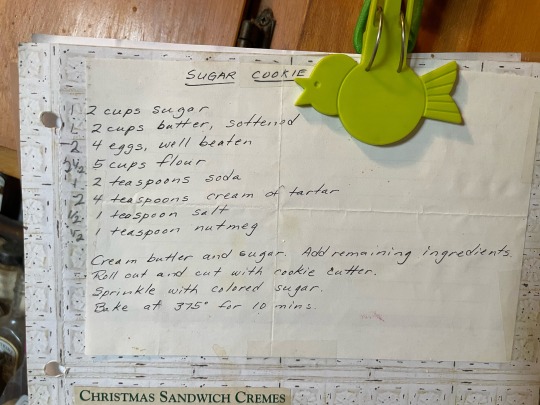 SUGAR COOKIE
1 2 cups sugar
1 2 cups butter, softened
2 4 eggs, well beaten
2½ 5 cups flour
1 2 teaspoons soda
2 4 teaspoons cream of tartar
½ 1 teaspoon salt
½ 1 teaspoon nutmeg
Cream butter and sugar. Add remaining ingredients.
Roll out and cut with cookie cutter.
Sprinkle with colored sugar.
Bake at 375° for 10 mins.
CHRISTMAS SANDWICH CREMES